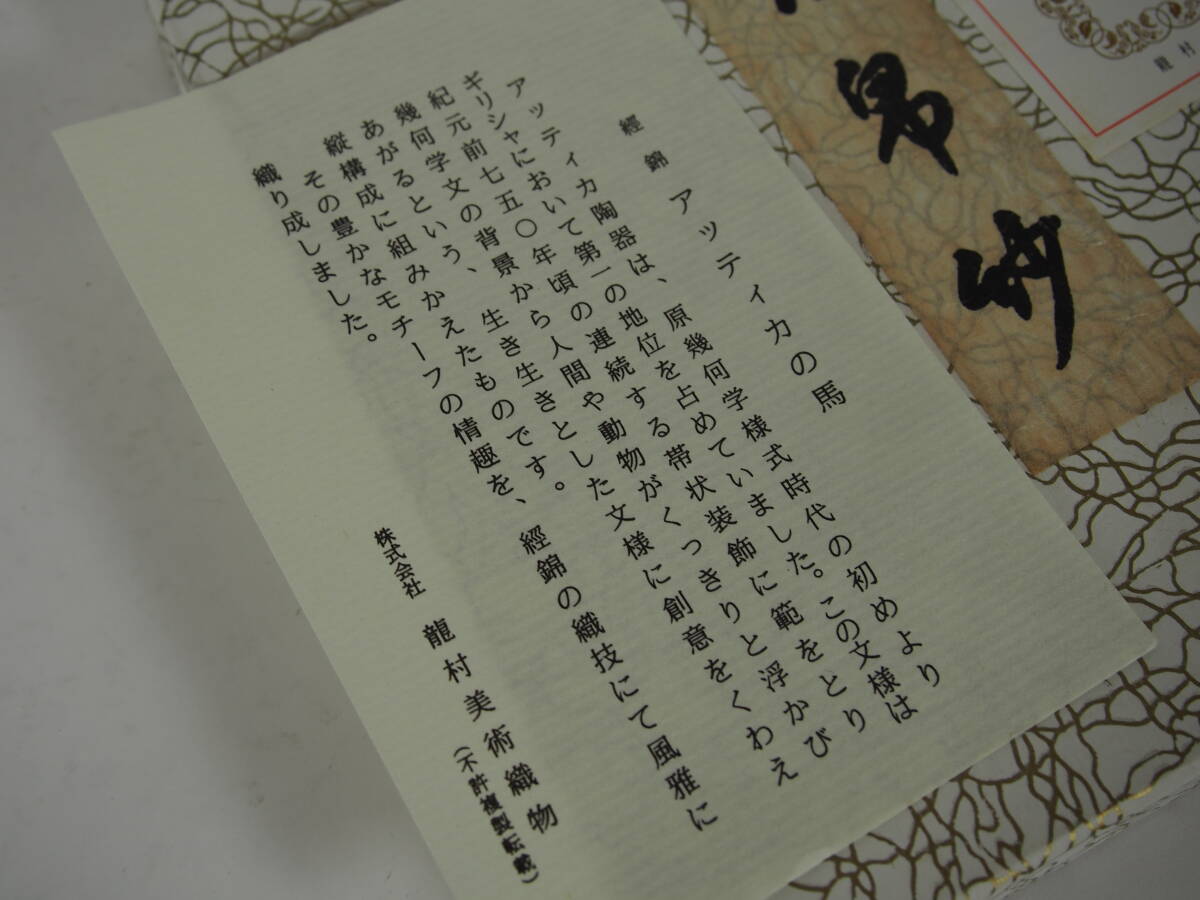 經錦 アッティカの馬
アッティカ陶器は、原幾何学様式時代の初めより
ギリシャにおいて第一の地位を占めていました。この文様は
紀元前七五〇年頃の連続する帯状装飾に範をとり
幾何学文の背景から人間や動物がくっきりと浮かび
あがるという、生き生きとした文様に創意をくわえ
縦構成に組みかえたものです。
その豊かなモチーフの情趣を、經錦の織技にて風雅に
織り成しました。
株式会社 龍村美術織物
(不許複製転載)
帛紗
龍村